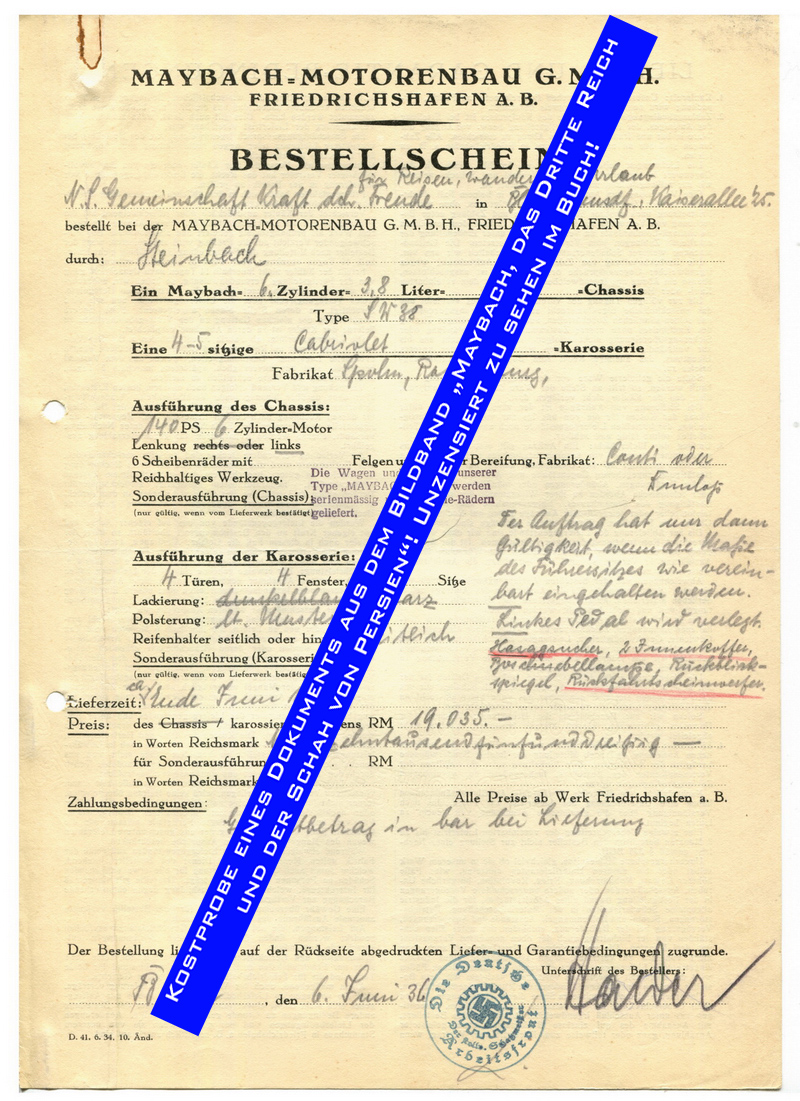 MAYBACH=MOTORENBAU G. M H.
FRIEDRICHSHAFEN A. B.
BESTELLSCHEIN
für Reisen, wander rlaub
N.S. Gemeinschaft Kraft dch. Freude in Kaiserallee 25.
bestellt bei der MAYBACH=MOTORENBAU G. M. B. H., FRIED HAFEN A. B.
durch: Steinbach
Ein Maybach= 6 Zylinder= 3,8 Liter= =Chassis
Type SW38
Eine 4-5 sitzige Cabriolet =Karosserie
Fabrikat Spohn, Ra ung,
Ausführung des Chassis:
140 PS 6 Zylinder=Motor
Lenkung rechts oder links
6 Scheibenräder mit Felgen u r Bereifung, Fabrikat: Conti oder
Dunlop
Reichhaltiges Werkzeug.
Sonderausführung (Chassis):
(nur gültig, wenn vom Lieferwerk bestätigt)
Die Wagen un unserer
Type „MAYBAC werden
serienmässig e-Rädern
geliefert.
Der Auftrag hat nur dann
Gültigkeit, wenn die Maße
des Führersitzes wie verein-
bart eingehalten werden.
Linkes Pedal wird verlegt.
Ausführung der Karosserie:
4 Türen, 4 Fenster, Sitze
Lackierung: dunkelblau arz
Polsterung: lt. Muster
Reifenhalter seitlich oder hin itlich
Sonderausführung (Karosseri
(nur gültig, wenn vom Lieferwerk bestätig
sucher, 2 Innenkoffer,
Rückblick-
spiegel, Rückfahrtscheinwerfer.
Lieferzeit: Ende Juni
Preis: des Chassis / karossier ens RM 19.035.-
in Worten Reichsmark zehntausendfünfunddreißig —
für Sonderausführun RM
in Worten Reichsmark
Zahlungsbedingungen: Alle Preise ab Werk Friedrichshafen a. B.
G tbetrag in bar bei Lieferung
Der Bestellung li auf der Rückseite abgedruckten Liefer= und Garantiebedingungen zugrunde.
Unterschrift des Bestellers:
, den 6. Juni 36
Die Deutsche
Arbeitsfront
D. 41. 6. 34. 10. Änd.
KOSTPROBE EINES DOKUMENTS AUS DEM BILDBAND „MAYBACH, DAS DRITTE REICH
UND DER SCHAH VON PERSIEN“! UNZENSIERT ZU SEHEN IM BUCH!